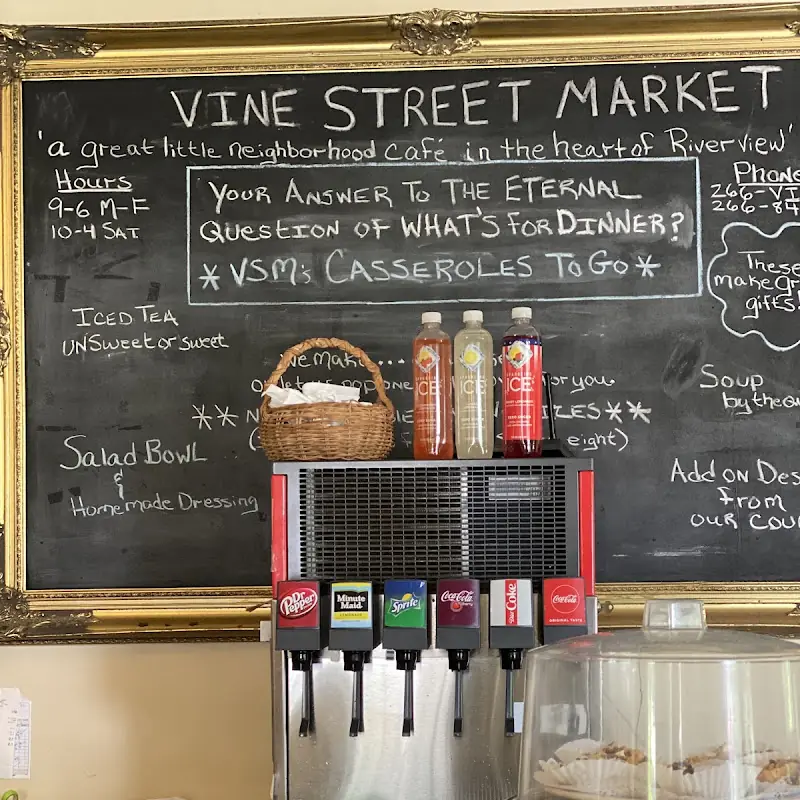 VINE STREET MARKET
'a great little neighborhood café in the heart of Riverview'
Hours
9-6 M-F
10-4 SAT
YOUR ANSWER TO THE ETERNAL
QUESTION OF WHAT'S FOR DINNER?
* VSM's CASSEROLES TO GO *
Phone
266-VI
266-84
These
make gr
gifts!
ICED TEA
UNSweet or sweet
we mak
or you
**
IZES**
eight)
Soup
by the
Salad BOWL
&
Homemade Dressing
Add on Des
From
our cou
ICE
ICE
ICE
Dr Pepper
Minute Maid
LEMONADE
Sprite
Coca-Cola
Cherry
Diet Coke
Coca-Cola
ORIGINAL TASTE